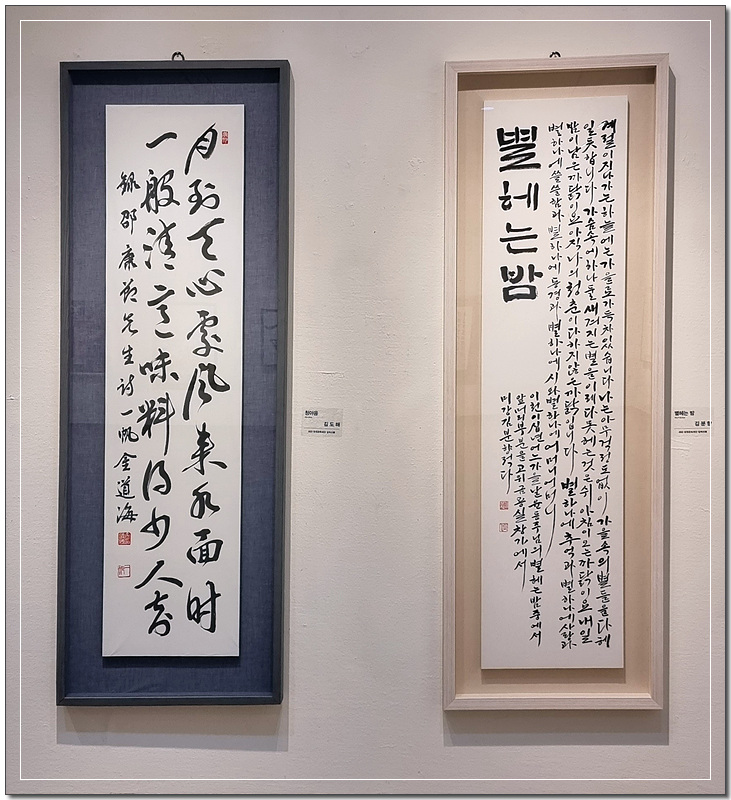 月到天心處風来水面时
一般清意味料得少人知
錄邵康節先生詩一帆金道海
청야음
김 도 해
별헤는밤
계절이지나가는하늘에는가을로가득차있습니다나는아무걱정도없이 가을속의별들을다헤
일듯합니다 가슴속에하나둘새겨지는별을이제다못헤는것은쉬아침이오는까닭이요내일
밤이남은까닭이요아직나의청춘이다하지않은까닭입니다 별하나에추억과별하나에사랑과
별하나에쓸쓸함과 별하나에동경과 별하나에시와별하나에어머니어머니
이천이십년어느가을날윤동주님의별헤는밤중에서
앞머리부분을 창가에서
김분향적다
별헤는 밤
김 분